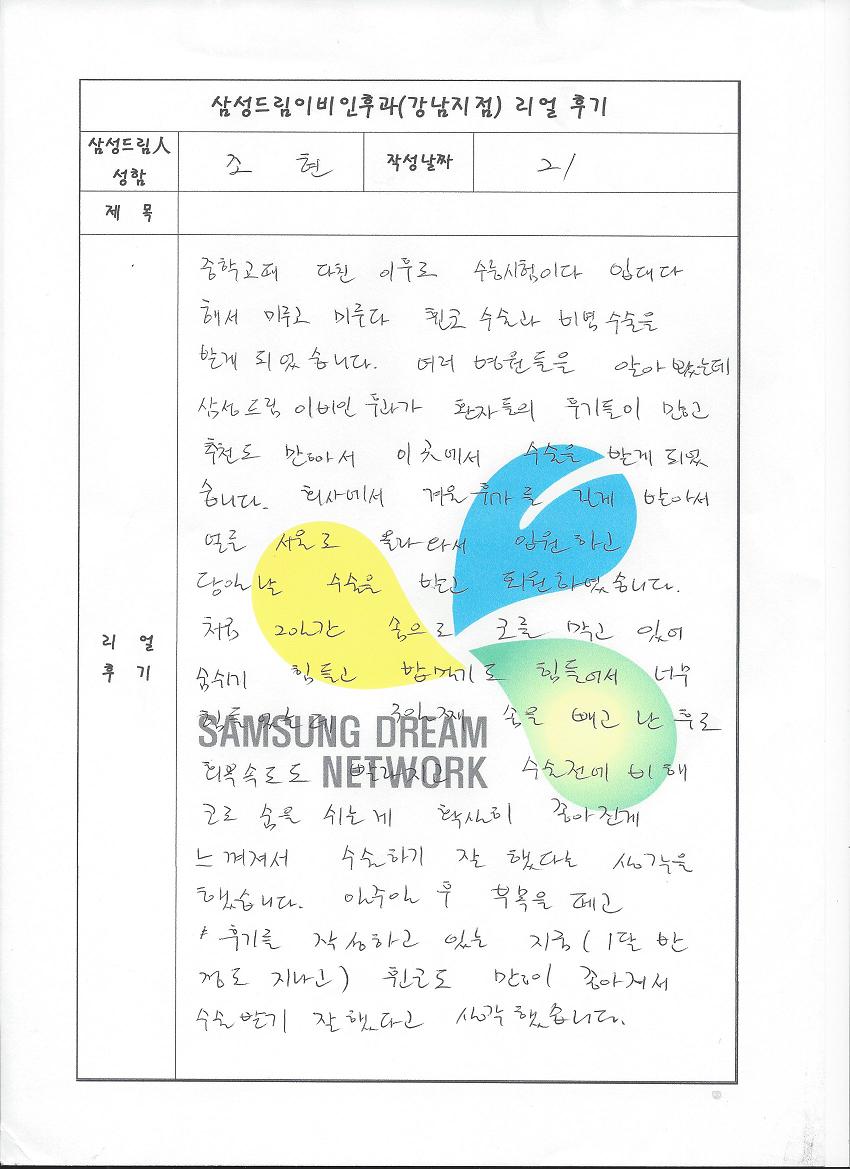 삼성드림이비인후과(강남지점) 리얼 후기
삼성드림人 성함
조 현
작성날짜
21
제 목
리 얼 후 기
중학교때 다친 이후로 수능시험이다 입대다
해서 미루고 미루다 휜코 수술과 비염 수술을
받게 되었습니다. 여러 병원들을 알아봤는데
삼성드림 이비인후과가 환자들의 후기들이 많고
추천도 많아서 이 곳에서 수술을 받게 되었
습니다. 회사에서 겨울 휴가를 길게 받아서
얼른 서울로 올라와서 입원하고
당일날 수술을 받고 퇴원하였습니다.
처음 2일간 솜으로 코를 막고 있어
숨쉬기 힘들고 밥먹기도 힘들어서 너무
힘들었는데 3일째 솜을 빼고 난 후로
회복속도도 빨라지고 수술전에 비해
코로 숨을 쉬는게 확실히 좋아진게
느껴져서 수술하기 잘 했다는 생각을
했습니다. 일주일 후 부목을 떼고
후기를 작성하고 있는 지금 (1달 반
정도 지나고) 휜코도 많이 좋아져서
수술받기 잘했다고 생각했습니다.
SAMSUNG DREAM
NETWORK